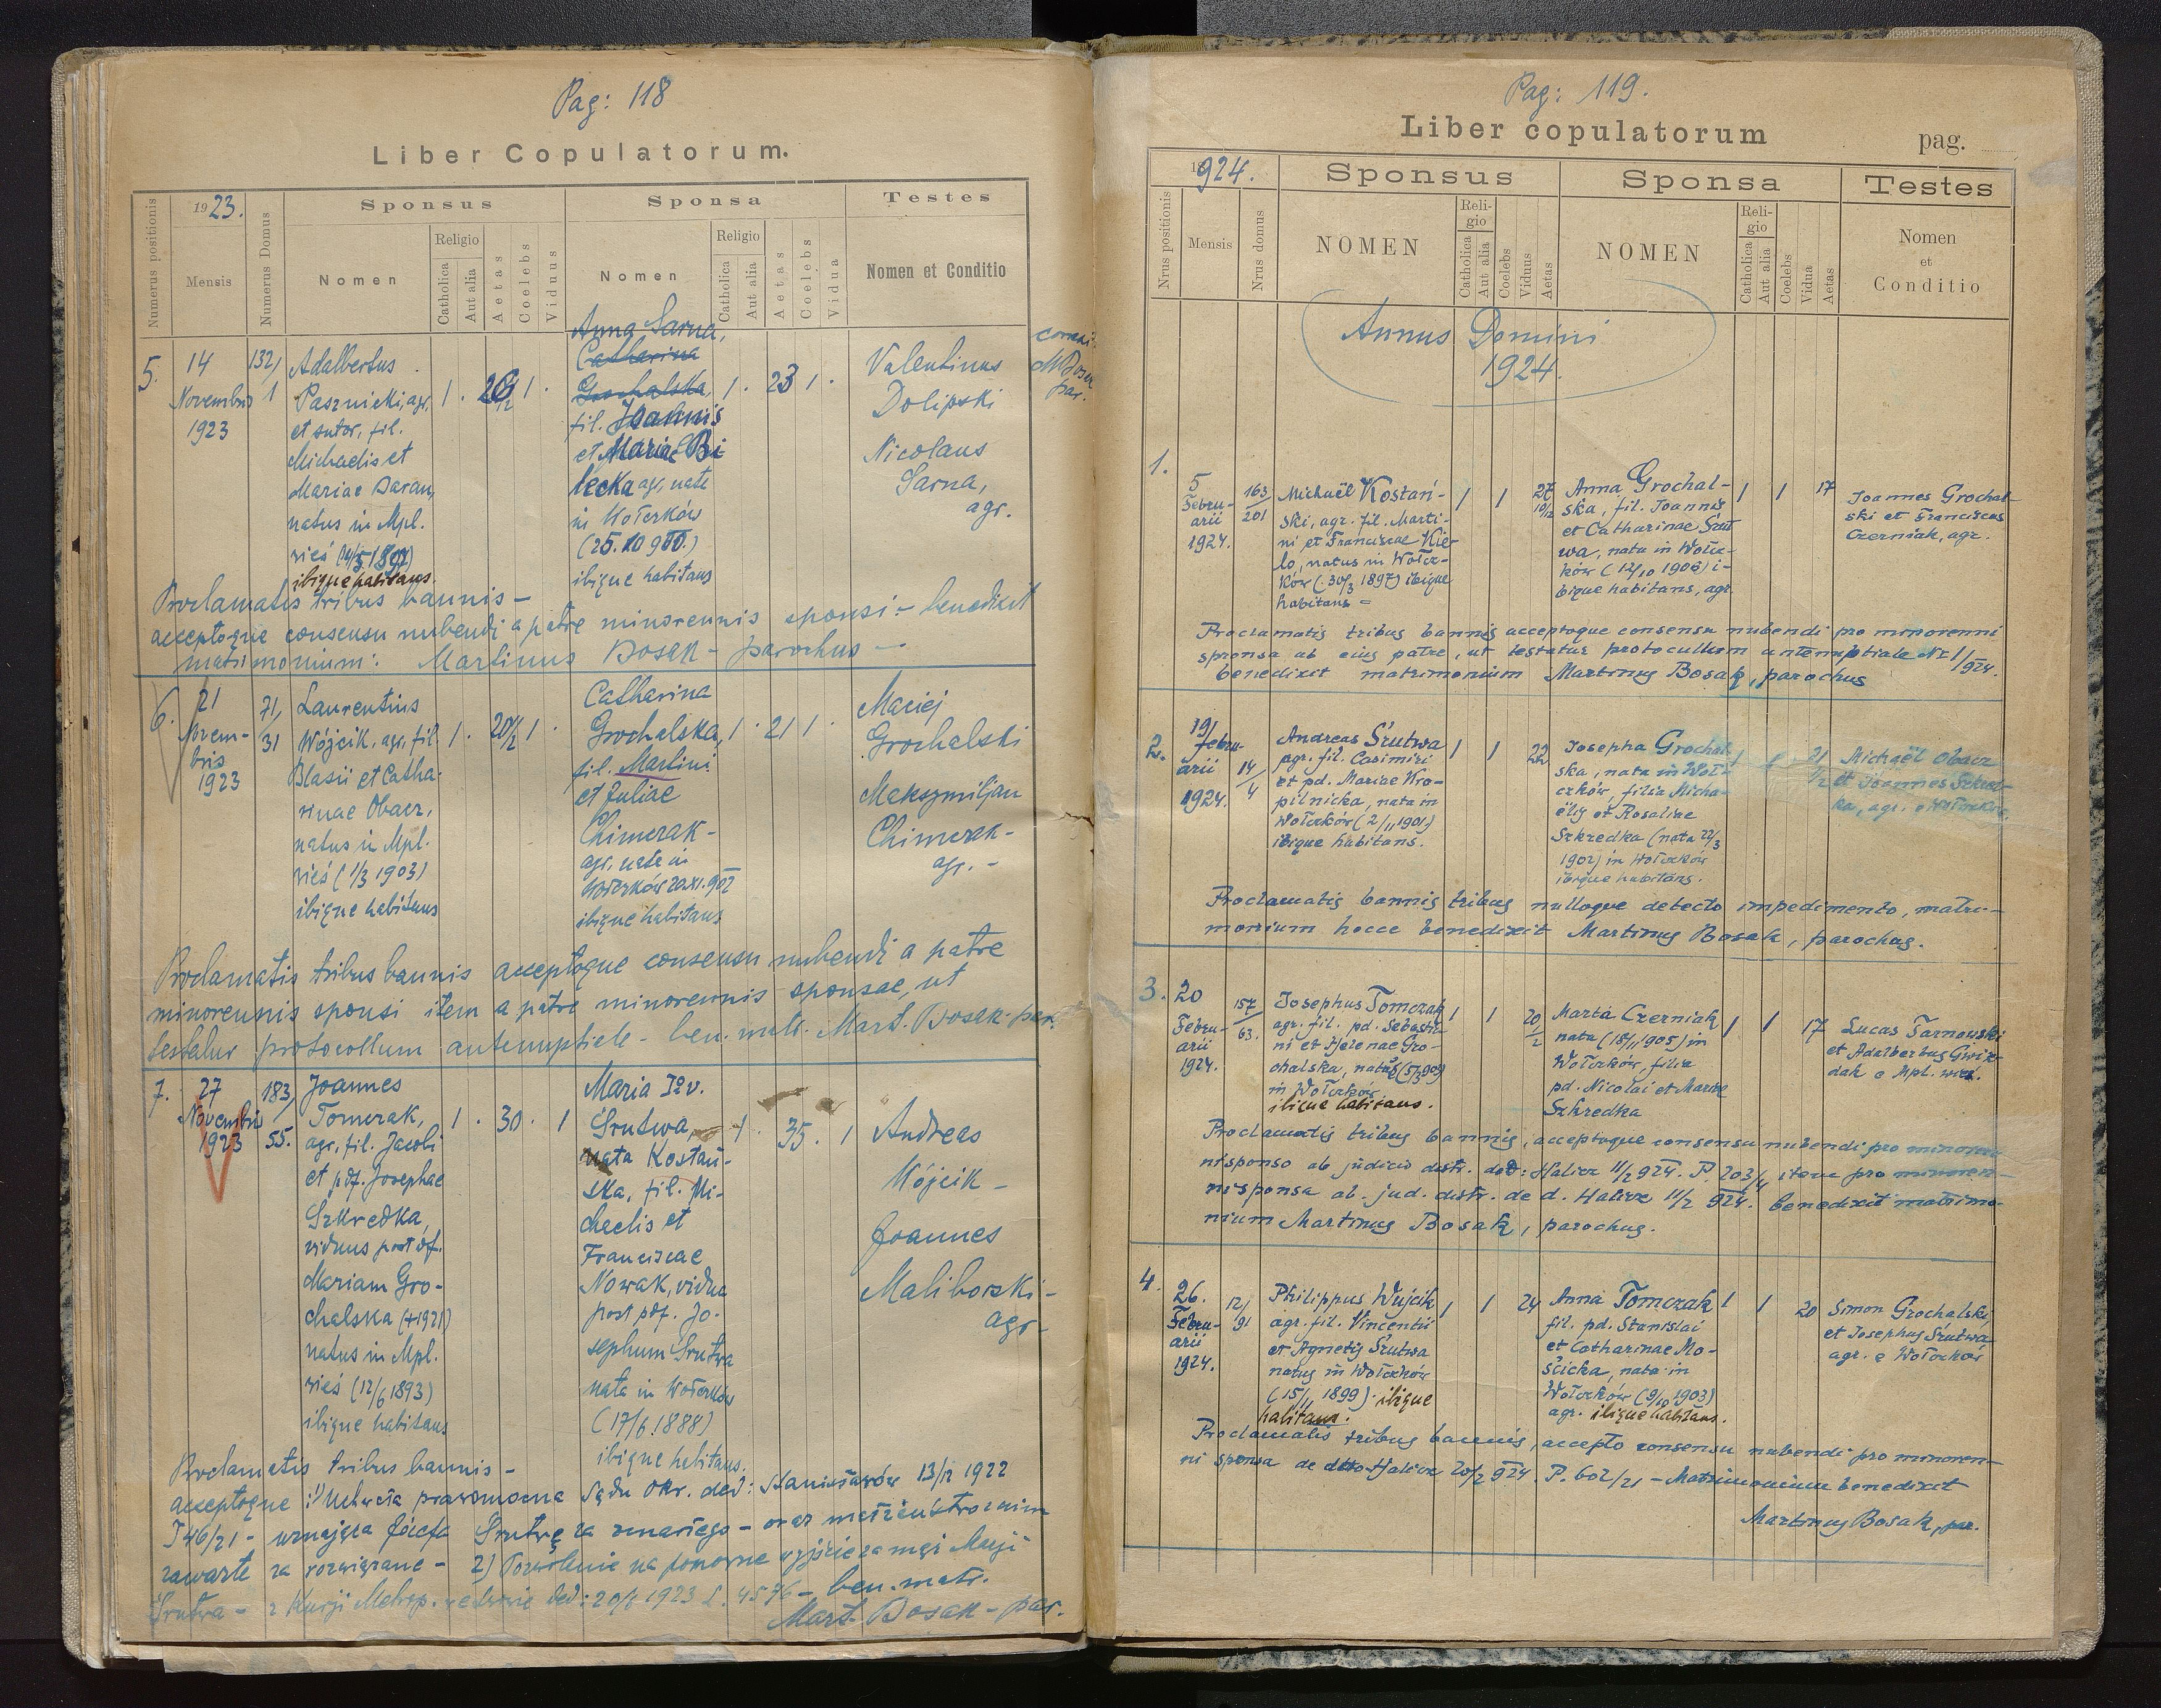 Pag: 118
Liber Copulatorum.
1923.
Sponsus
Sponsa
Testes
Numerus positionis
Mensis
Numerus Domus
Nomen
Religio
Catholica
Aut alia
Aetas
Coelebs
Viduus
Nomen
Religio
Catholica
Aut alia
Aetas
Coelebs
Vidua
Nomen et Conditio
5.
14
Novembris
1923
132/
1
Adalbertus
Pasznicki, agr,
et sutor, fil.
Michaelis et
Mariae Baran,
natus in Mpl.
wieś
ibique habitans.
1.
1.
Anna Sarna,
Catharina
Grochalska,
fil. Joannis
et Mariae Bi-
lecka agr, nata
in Wołczków
ibique habitans
1.
23
1.
Valentinus
Dolipski
Nicolaus
Sarna,
agr.
M Bosak
par.
Proclamatis tribus bannis -
acceptoque consensu nubendi a patre minorennis sponsi - benedixit
matrimonium: Martinus Bosak - parochus -
6.
21
Novem-
bris
1923
71,
31
Laurentius
Wójcik, agr, fil.
Blasii et Catha-
rinae Obacz,
natus in Mpl.
wieś (1/3 1903)
ibique habitans
1.
20 1/2
1.
Catharina
Grochalska,
fil. Martini
et Juliae
Chimczak -
agr. nata in
Wołczków 20.XI.902
ibique habitans
1.
21
1.
Maciej
Grochalski
Maksymiljan
Chimczak -
agr. -
Proclamatis tribus bannis acceptoque consensu nubendi a patre
minorennis sponsi item a patre minorennis sponsae, ut
testatur protocollum antenuptiale - ben. matr. Mart. Bosak - par.
7.
27
Novembris
1923
183,
55.
Joannes
Tomczak,
agr, fil. Jacobi
et pdf. Josephae
Szkredka,
viduus post df.
Mariam Gro-
chalska (+1921)
natus in Mpl.
wieś (12/6 1893)
ibique habitans
1.
30.
1
Maria I2v.
Śrutwa,
nata Kostań-
ska, fil. Mi-
chaelis et
Franciscae
Nowak, vidua
post pdf. Jo-
sephum Śrutwa
nata in Wołczków
(17/6 1888)
ibique habitans.
1.
35.
1
Andreas
Wójcik -
Joannes
Maliborski -
agr -
Proclamatis tribus bannis -
acceptoque : 1) Uchwała prawomocna Sądu Okr. ded: Stanisławów 13/12 1922
T 46/21 - uznająca Józefa Śrutwę za zmarłego - oraz małżeństwo z nim
zawarte za rozwiązane - 2) Pozwolenie na ponowne wyjście za mąż Maryi
Śrutwa - z Kurji Metrop. we Lwowie ded: 20/6 1923 L. 4576 - ben. matr.
Mart. Bosak - par.
Pag: 119.
Liber copulatorum
pag.
1924.
Sponsus
Sponsa
Testes
Nrus positionis
Mensis
Nrus domus
NOMEN
Reli-
gio
Catholica
Aut alia
Coelebs
Viduus
Aetas
NOMEN
Reli-
gio
Catholica
Aut alia
Coelebs
Vidua
Aetas
Nomen
et
Conditio
Annus Domini
1924.
1.
5
Febru-
arii
1924.
163/
201
Michaël Kostań-
ski, agr. fil. Marti-
ni et Franciscae Kie-
lo, natus in Wołcz-
ków (30/3 1897) ibique
habitans =
1
1
27
10/12
Anna Grochal-
ska, fil. Joannis
et Catharinae Śrut
wa, nata in Wołcz-
ków (12/10 1906) i-
bique habitans, agr.
1
1
17
Joannes Grochal-
ski et Franciscus
Czerniak, agr.
Proclamatis tribus bannis acceptoque consensu nubendi pro minorenni
sponsa ab eius patre, ut testatur protocollum antenuptiale Nr 1/924.
benedixit matrimonium Martinus Bosak, parochus
2.
19/
febru-
arii
1924.
14/
4
Andreas Śrutwa
agr. fil. Casimiri
et pd. Mariae Kro-
pilnicka, nata in
Wołczków (2/11 1901)
ibique habitans.
1
1
22
Josepha Grochal-
ska, nata in Woł-
czków, filia Micha-
ëlis et Rosaliae
Szkredka (nata 22/3
1902) in Wołczków
ibique habitans.
1
1
21
Michaël Obacz
et Joannes Szkred-
ka, agr. e Wołczków.
Proclamatis bannis tribus nulloque detecto impedimento, matri-
monium hocce benedixit Martinus Bosak, parochus.
3.
20
Febru-
arii
1924.
157/
63.
Josephus Tomczak
agr. fil. pd. Sebastia-
ni et Helenae Gro-
chalska, natus (5/3 903)
in Wołczków
ibique habitans.
1
1
20
1/2
Marta Czerniak
nata (18/11 905) in
Wołczków, filia
pd. Nicolai et Mariae
Szkredka
1
1
17
Lucas Tarnowski
et Adalbertus Gwiz-
dak e Mpl. wieś.
Proclamatis tribus bannis, acceptoque consensu nubendi pro minoren
ni sponso ab judicio distr. ded: Halicz 11/2 924. P. 203/4 item pro minoren-
ni sponsa ab. jud. distr. de d. Halicz 11/2 924. benedixit matrimo-
nium Martinus Bosak, parochus.
4.
26.
Febru-
arii
1924.
12/
91
Philippus Wujcik
agr. fil. Vincentii
et Agnetis Śrutwa
natus in Wołczków
(15/11 1899) ibique
habitans.
1
1
24
Anna Tomczak
fil. pd. Stanislai
et Catharinae Mo-
ścicka, nata in
Wołczków (9/10 1903)
agr. ibique habitans.
1
1
20
Simon Grochalski
et Josephus Śrutwa
agr. e Wołczków
Proclamatis tribus bannis, accepto consensu nubendi pro minoren-
ni sponsa de dtto Halicz 20/2 924. P. 602/21 - Matrimonium benedixit
Martinus Bosak, par.